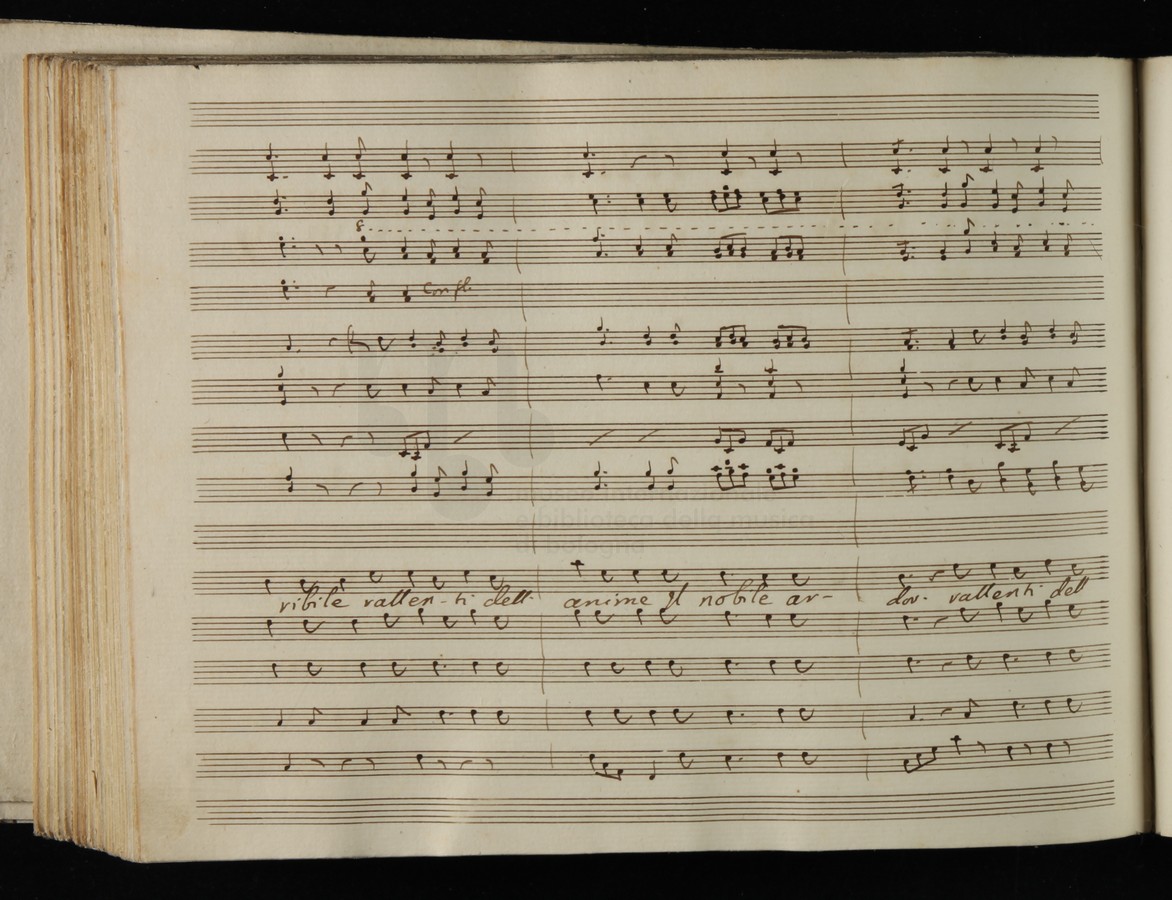 8
Con fl.
ribile rallen-ti dell' anime Il nobile ar- dor. rallenti dell
museo internazionale
e biblioteca della musica
di bologna